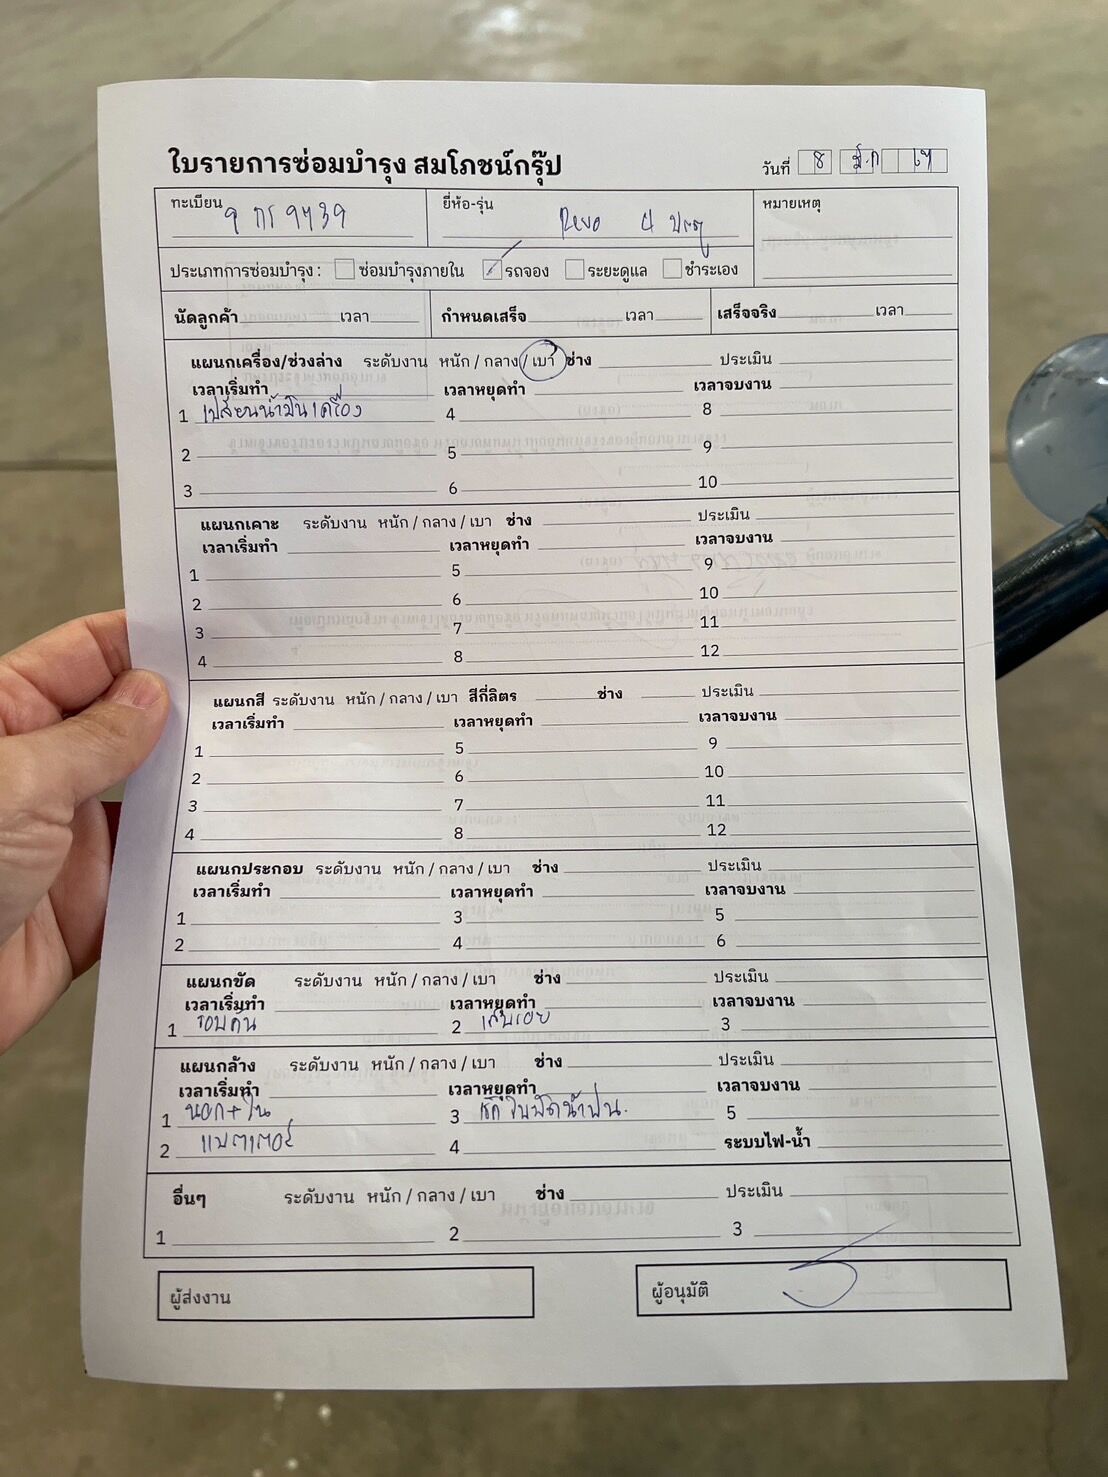 ใบรายการซ่อมบำรุง สมโภชน์กรุ๊ป วันที่ 8
ทะเบียน ยี่ห้อ-รุ่น Revo 4 ประตู หมายเหตุ
ประเภทการซ่อมบำรุง : ซ่อมบำรุงภายใน รถจอง ระยะดูแล ชำระเอง
นัดลูกค้า เวลา กำหนดเสร็จ เวลา เสร็จจริง เวลา
แผนกเครื่อง/ช่วงล่าง ระดับงาน หนัก / กลาง / เบา ช่าง ประเมิน
เวลาเริ่มทำ เวลาหยุดทำ เวลาจบงาน
1 เปลี่ยนน้ำมันเครื่อง 4 8
2 5 9
3 6 10
แผนกเคาะ ระดับงาน หนัก / กลาง / เบา ช่าง ประเมิน
เวลาเริ่มทำ เวลาหยุดทำ เวลาจบงาน
1 5 9
2 6 10
3 7 11
4 8 12
แผนกสี ระดับงาน หนัก / กลาง / เบา สีกี่ลิตร ช่าง ประเมิน
เวลาเริ่มทำ เวลาหยุดทำ เวลาจบงาน
1 5 9
2 6 10
3 7 11
4 8 12
แผนกประกอบ ระดับงาน หนัก / กลาง / เบา ช่าง ประเมิน
เวลาเริ่มทำ เวลาหยุดทำ เวลาจบงาน
1 3 5
2 4 6
แผนกขัด ระดับงาน หนัก / กลาง / เบา ช่าง ประเมิน
เวลาเริ่มทำ เวลาหยุดทำ เวลาจบงาน
1 รอบคัน 2 3
แผนกล้าง ระดับงาน หนัก / กลาง / เบา ช่าง ประเมิน
เวลาเริ่มทำ เวลาหยุดทำ เวลาจบงาน
1 นอก+ใน 3 เช็คใบปัดน้ำฝน. 5
2 แบตเตอรี่ 4 ระบบไฟ-น้ำ
อื่นๆ ระดับงาน หนัก / กลาง / เบา ช่าง ประเมิน
1 2 3
ผู้ส่งงาน ผู้อนุมัติ